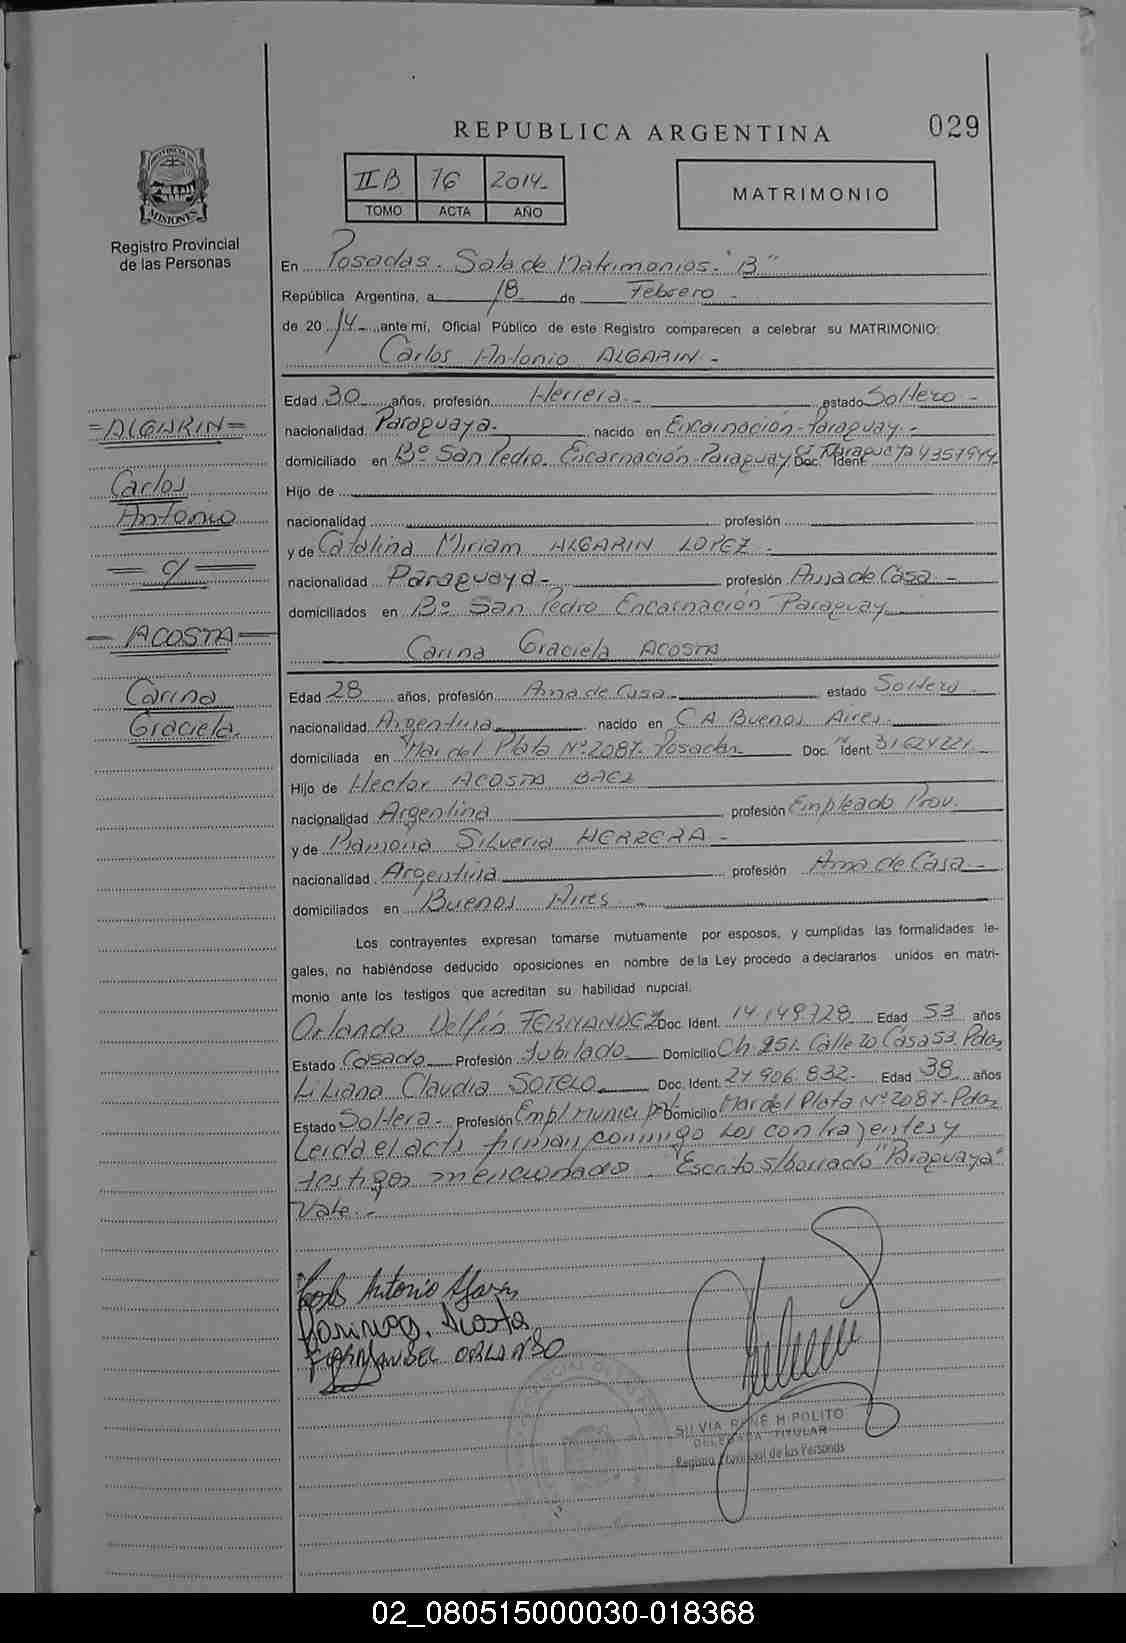 029
REPUBLICA ARGENTINA
II B 76 2014.-
TOMO ACTA AÑO
MATRIMONIO
PROVINCIA DE MISIONES
Registro Provincial
de las Personas
En Posadas. Sala de Matrimonios. "B"
República Argentina, a 18 de Febrero.-
de 20 14.- ante mí, Oficial Público de este Registro comparecen a celebrar su MATRIMONIO:
Carlos Antonio ALGARIN.-
Edad 30 años, profesión Herrero.- estado Soltero.-
nacionalidad Paraguaya.- nacido en Encarnación-Paraguay.-
domiciliado en Bº San Pedro. Encarnación-Paraguay Doc. Ident. Paraguaya 4351944
Hijo de
nacionalidad profesión
y de Catalina Miriam ALGARIN LOPEZ.-
nacionalidad Paraguaya.- profesión Ama de Casa.-
domiciliados en Bº San Pedro Encarnación Paraguay
Carina Graciela ACOSTA
Edad 28 años, profesión Ama de Casa.- estado Soltera.-
nacionalidad Argentina nacido en C.A Buenos Aires.-
domiciliada en Mar del Plata Nº 2087. Posadas Doc. Ident. 31624221
Hijo de Hector ACOSTA BAEZ
nacionalidad Argentina profesión Empleado Prov.
y de Ramona Silveria HERRERA.-
nacionalidad Argentina profesión Ama de Casa.-
domiciliados en Buenos Aires.-
Los contrayentes expresan tomarse mutuamente por esposos, y cumplidas las formalidades le-
gales, no habiéndose deducido oposiciones en nombre de la Ley procedo a declararlos unidos en matri-
monio ante los testigos que acreditan su habilidad nupcial.
Orlando Delfín FERNANDEZ Doc. Ident. 14.149.728 Edad 53 años
Estado Casado Profesión Jubilado Domicilio Ch. 251. Calle 20 Casa 53. Pdas
Liliana Claudia SOTELO Doc. Ident. 24.906.832. Edad 38 años
Estado Soltera.- Profesión Empl. Municipal Domicilio Mar del Plata Nº 2087. Pdas
Leida el acta firman conmigo los contrayentes y
testigos mencionado. Escrito s/borrado "Paraguaya"
Vale.-
=ALGARIN=
Carlos
Antonio
= c/ =
- ACOSTA -
Carina
Graciela.
Carlos Antonio Algarin
Carina G. Acosta
FERNANDEZ ORLANDO
SILVIA RENE HIPOLITO
DELEGADA TITULAR
Registro Provincial de las Personas
02_080515000030-018368